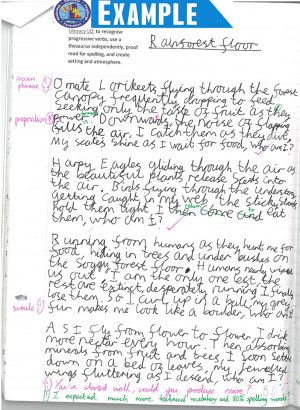 EXAMPLE
Literacy LO: to recognise
progressive verbs, use a
thesaurus independently, proof
read for spelling, and create
setting and atmosphere.
Rainforest floor
noun
phrase
Ornate Lorikeets flying through the forest
canopy frequently dropping to feed
seeking only the taste of fruit as they
preposition
Downwards the noise of flapping
fills the air. I catch them as they
My scales shine as I wait for food, who am I?
Harpy Eagles gliding through the air as
the beautiful plants release seeds into
the air. Birds flying through the understory
getting caught in my web, the sticky
hold them tight. I then come and eat
them, who am I?
Running from humans as they hunt me for
food, hiding in trees and under bushes on
the soggy forest floor. Humans nearly wiped
us out, I am the only one left the
rest are extinct, desperately running I finally
lose them. So I curl up in a ball, my grey
simile
fur makes me look like a boulder, who am I?
As I fly from flower to flower, I drink
more nectar every hour. Then absorbing
minerals from fruit and trees, I soon settle
down on a bed of leaves, my jewelled
wings fluttering as I descend, who am I?
You've started well, could you produce more?
I expected much more technical vocabulary and 80% spelling words